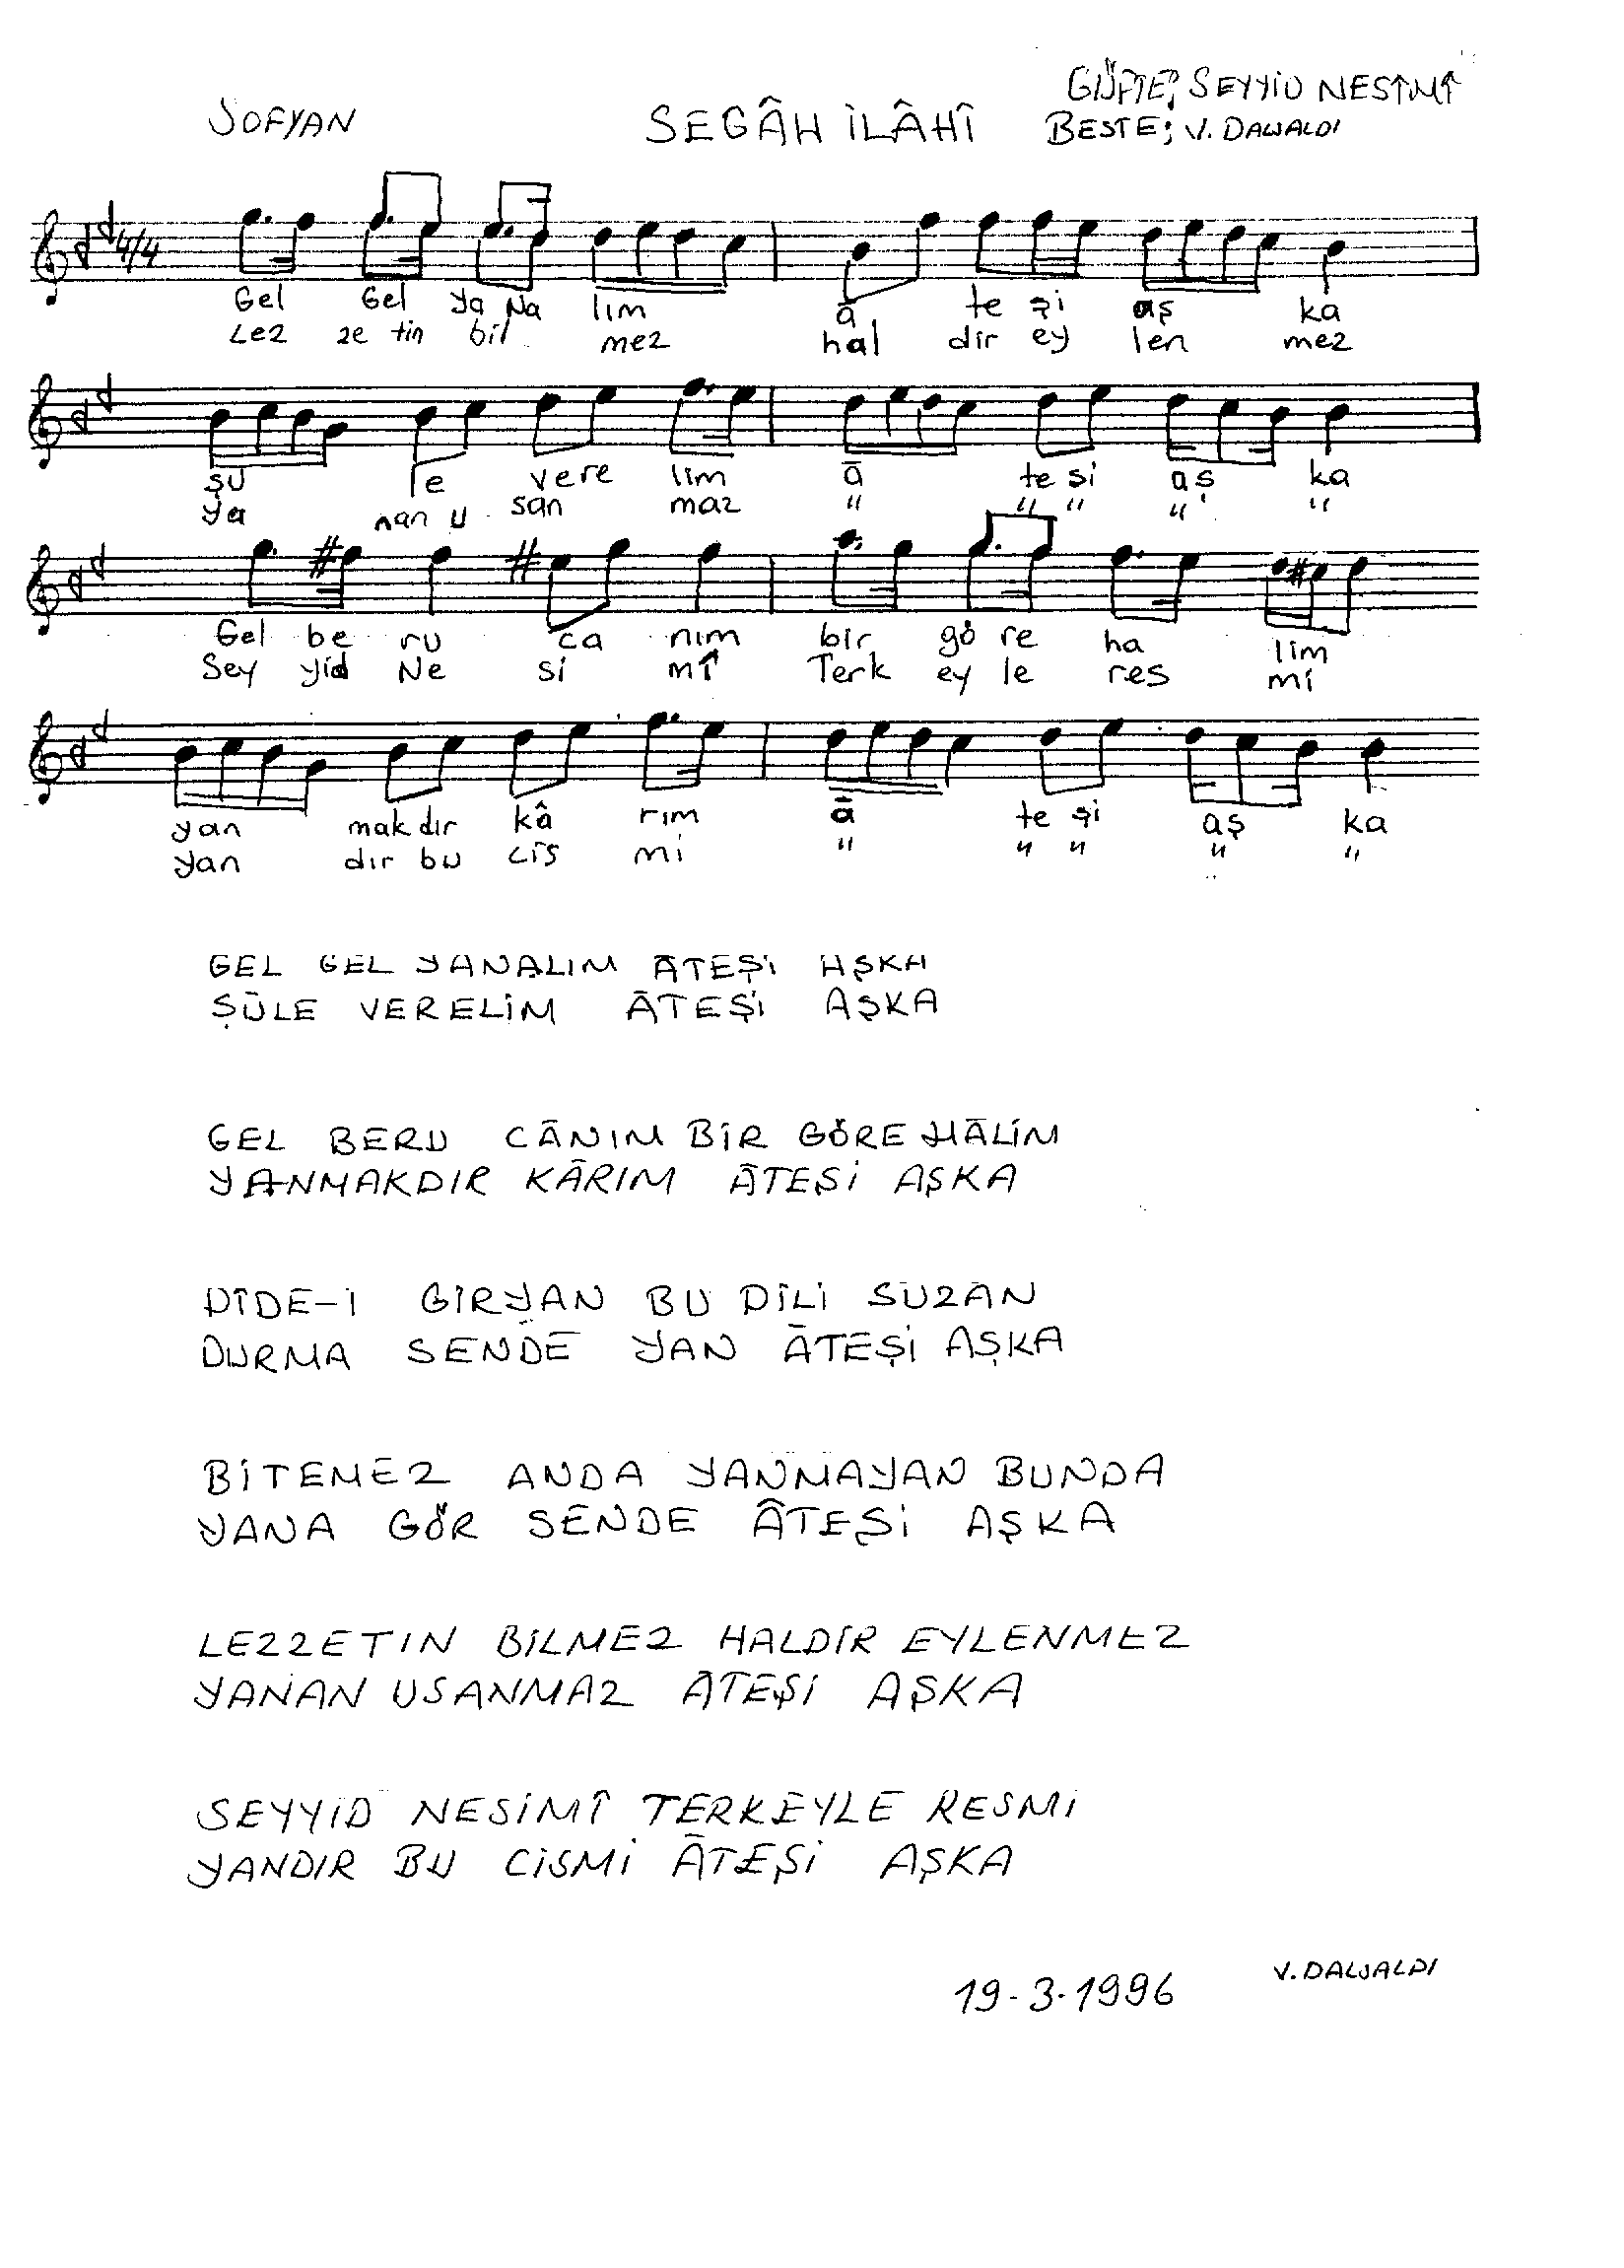 SOFYAN SEGÂH İLÂHÎ GÜFTE; SEYYİD NESÎMÎ
BESTE; V. DALSALDI
4/4
Gel Gel ya Na lım ā te şi aş ka
Lez ze tin bil mez hal dir ey len mez
şu le vere lim ā te si aş ka
ya nan u san maz " " " " "
Gel be ru ca nım bir gö re ha lim
Sey yid Ne si mî Terk ey le res mi
yan mak dır kâ rım ā te şi aş ka
yan dır bu cis mi " " " " "
GEL GEL YANALIM ĀTEŞİ AŞKA
ŞÛLE VERELİM ĀTEŞİ AŞKA
GEL BERU CĀNIM BİR GÖRE HĀLİM
YANMAKDIR KĀRIM ĀTEŞİ AŞKA
DÎDE-İ GİRYAN BU DİLİ SUZAN
DURMA SENDE YAN ĀTEŞİ AŞKA
BİTEMEZ ANDA YANMAYAN BUNDA
YANA GÖR SENDE ÂTEŞİ AŞKA
LEZZETIN BİLMEZ HALDİR EYLENMEZ
YANAN USANMAZ ĀTEŞİ AŞKA
SEYYİD NESİMÎ TERKEYLE RESMİ
YANDIR BU CİSMİ ĀTEŞİ AŞKA
19-3-1996 V. DALSALDI